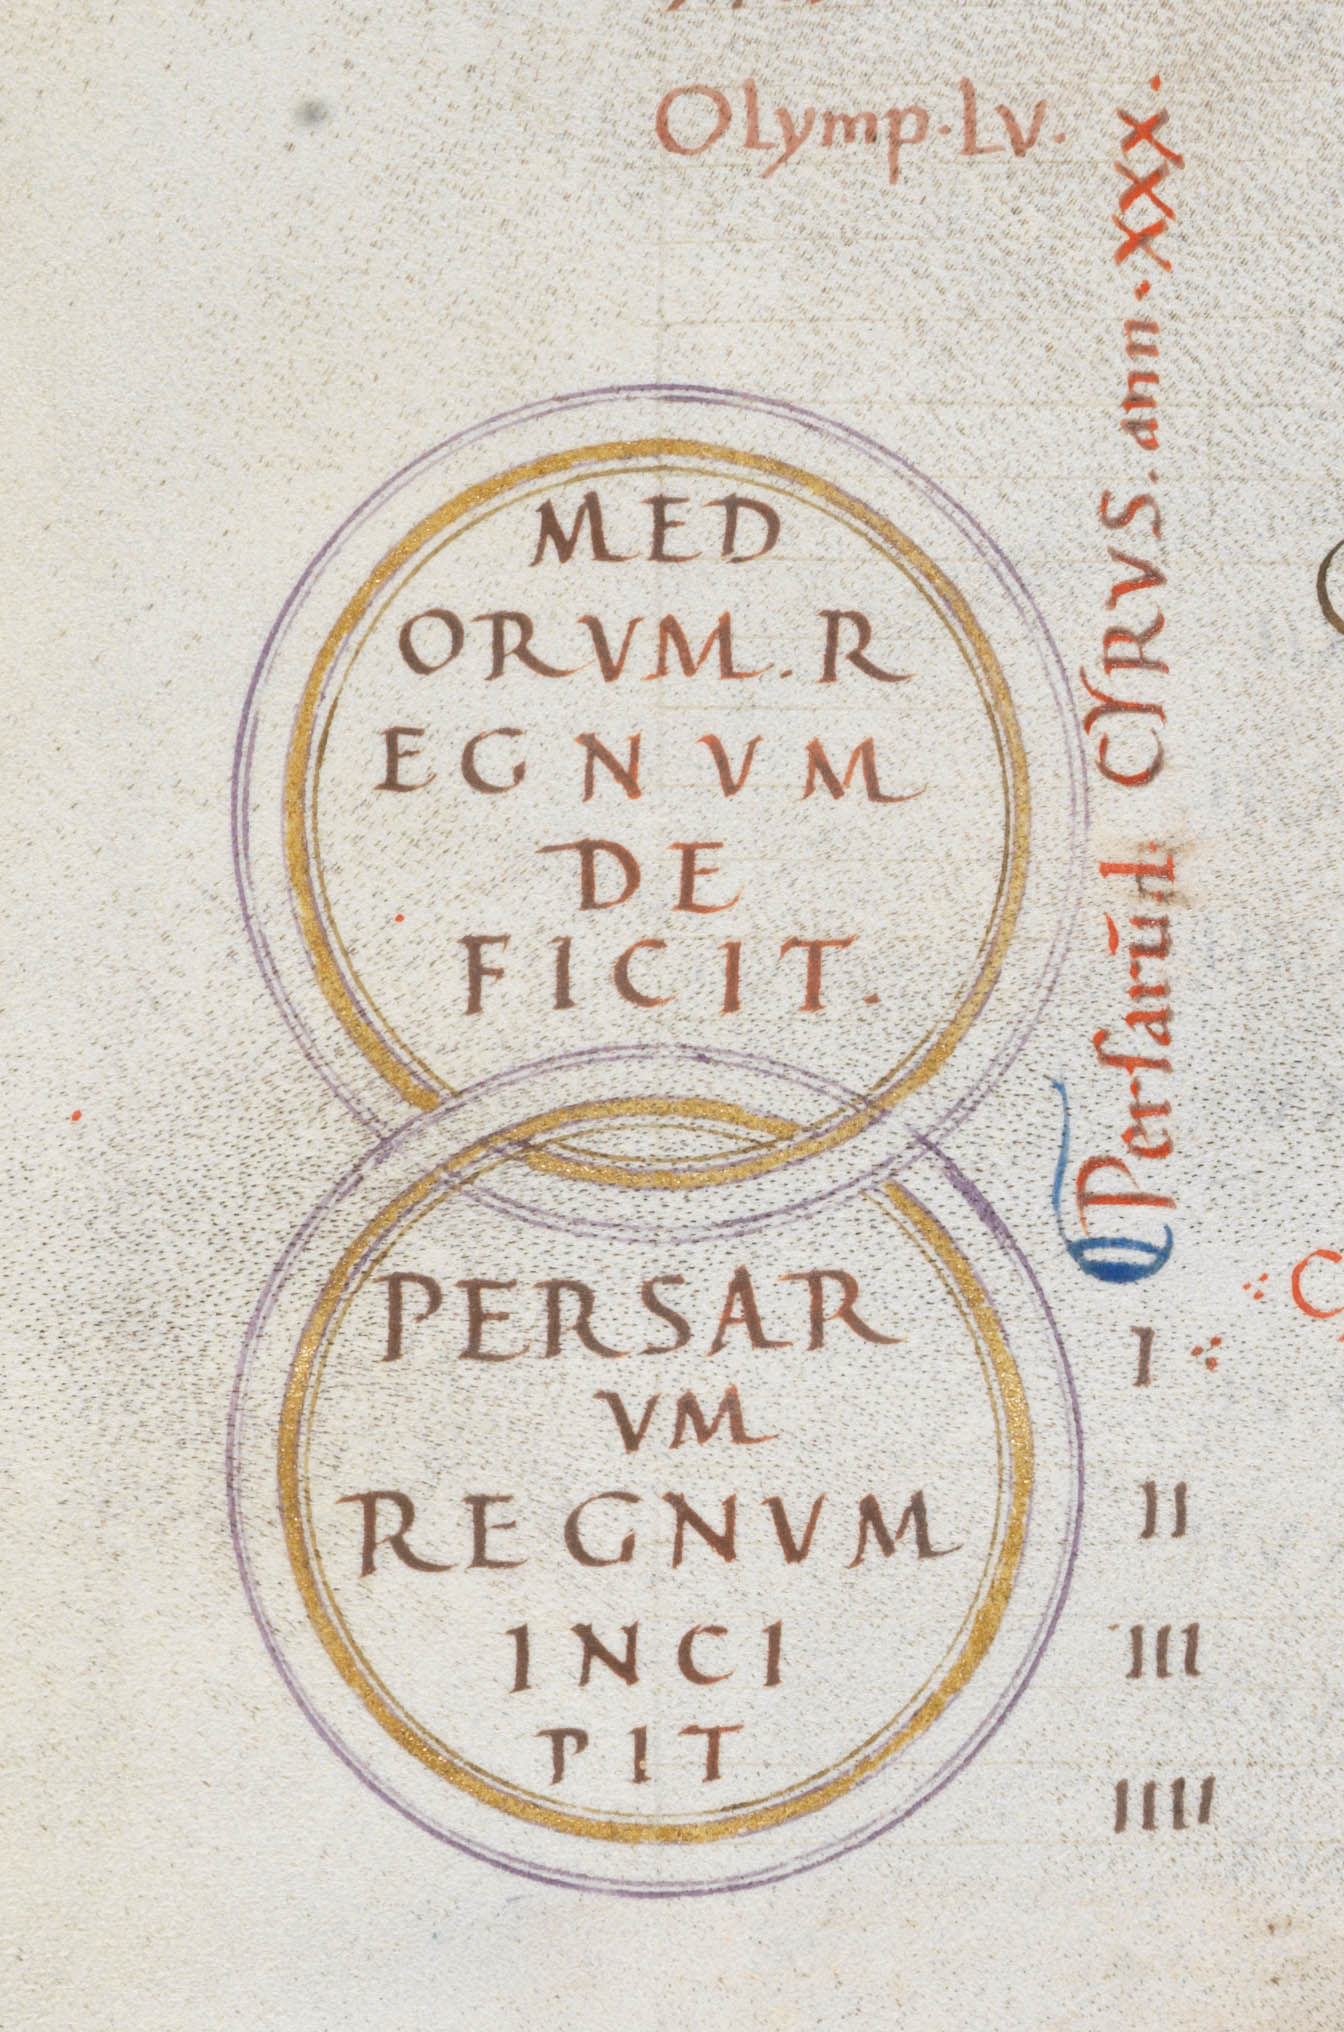 Olymp. LV.
MED
ORVM. R
EGNVM
DE
FICIT.
PERSAR
VM
REGNVM
INCI
PIT
Persarū. I. CYRVS. ann. XXX.
I
II
III
IIII
C